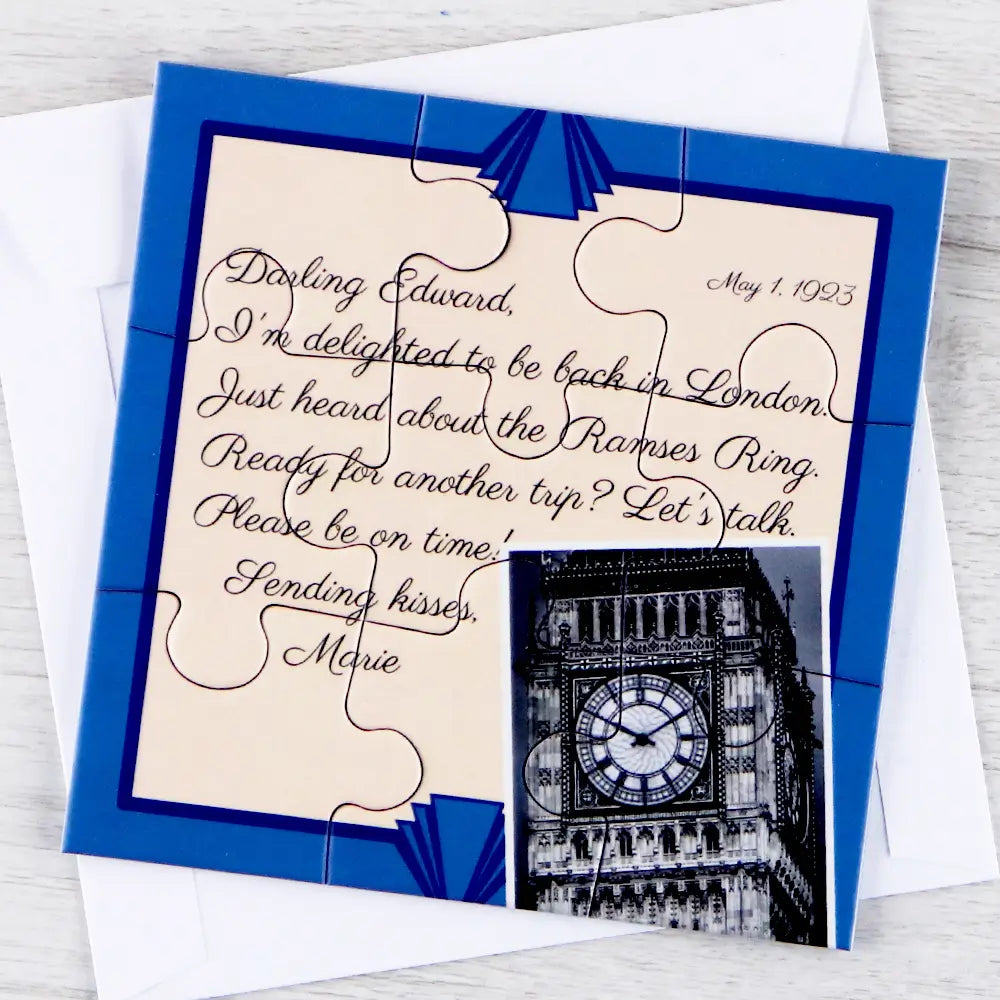 May 1, 1923
Darling Edward,
I'm delighted to be back in London.
Just heard about the Ramses Ring.
Ready for another trip? Let's talk.
Please be on time!
Sending kisses,
Marie